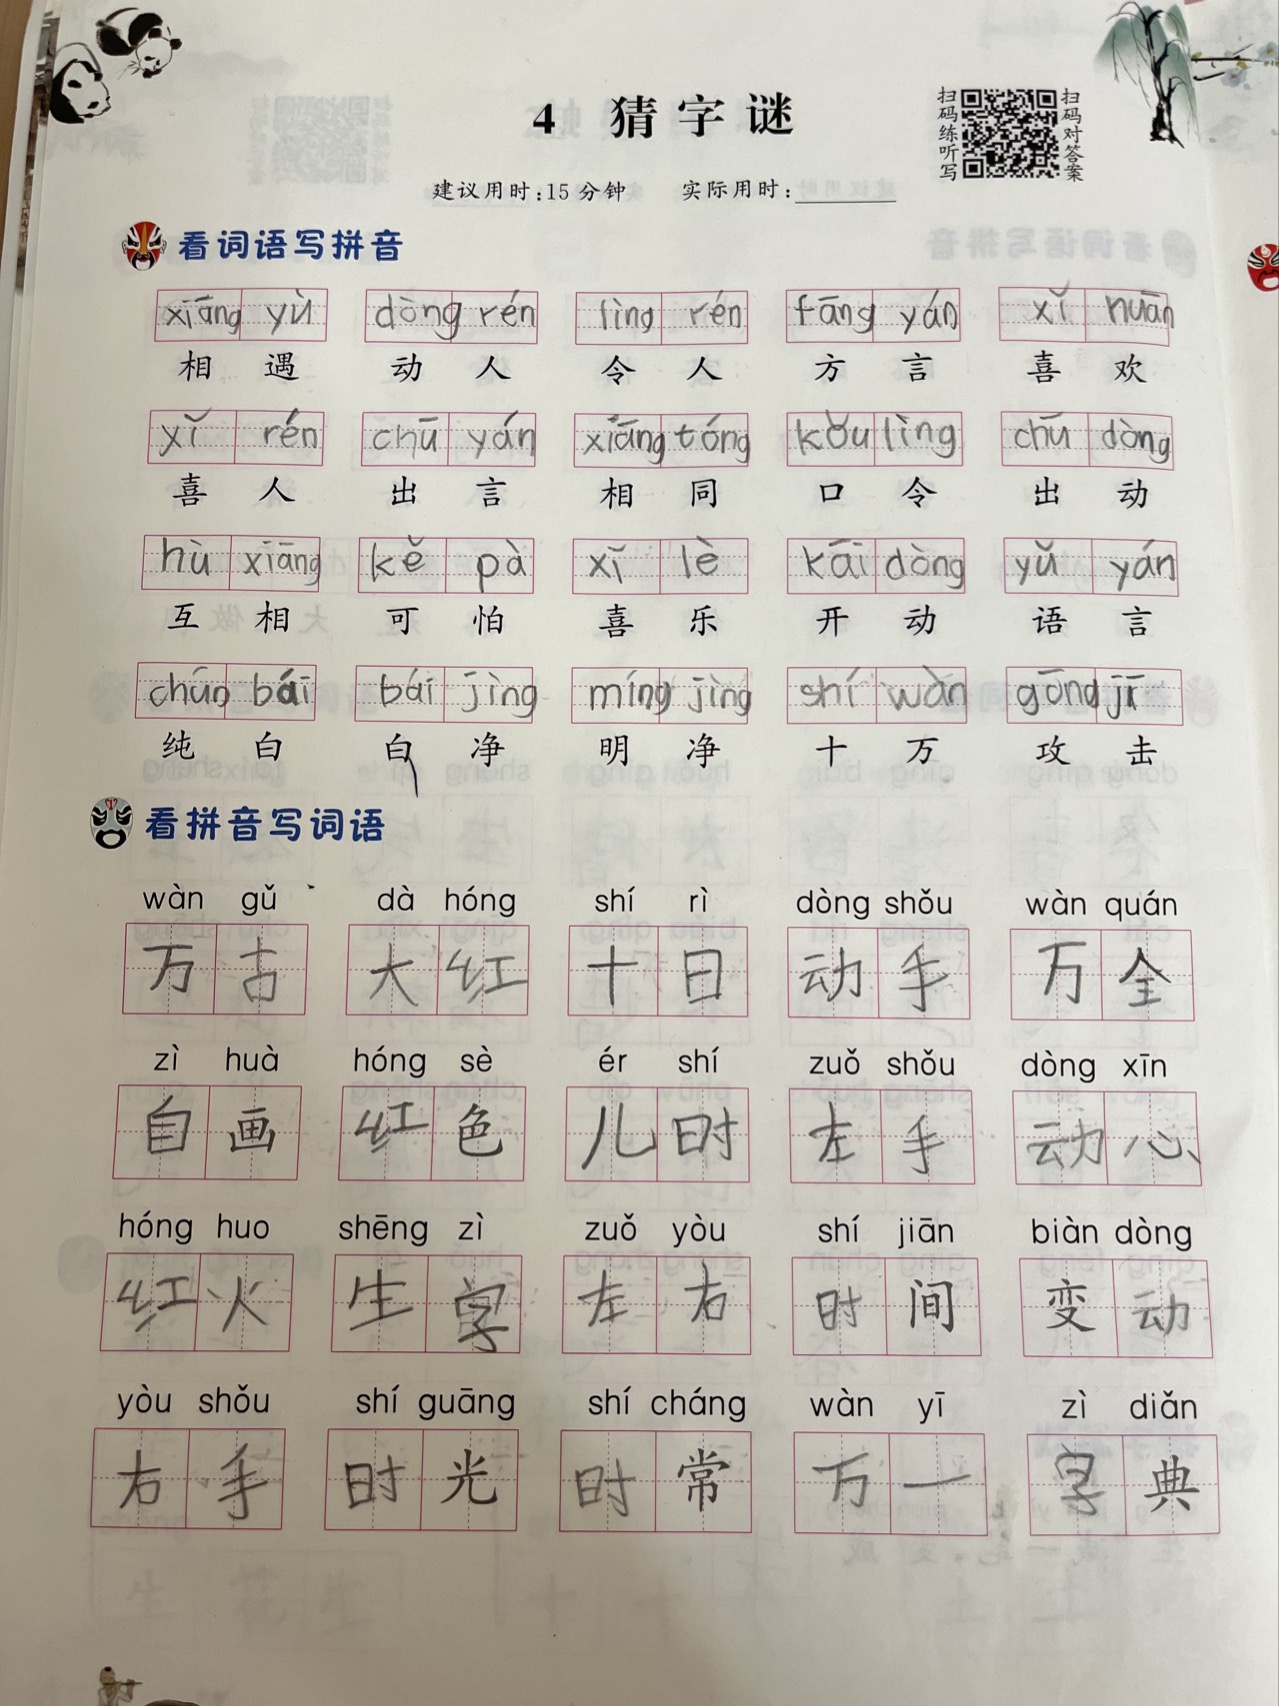 4 猜字谜
扫码练听写
扫码对答案
建议用时:15分钟 实际用时:
看词语写拼音
xiāng yù dòng rén lìng rén fāng yán xǐ huān
相遇 动人 令人 方言 喜欢
xǐ rén chū yán xiāng tóng kǒu lìng chū dòng
喜人 出言 相同 口令 出动
hù xiāng kě pà xǐ lè kāi dòng yǔ yán
互相 可怕 喜乐 开动 语言
chún bái bái jìng míng jìng shí wàn gōng jī
纯白 白净 明净 十万 攻击
看拼音写词语
wàn gǔ dà hóng shí rì dòng shǒu wàn quán
万古 大红 十日 动手 万全
zì huà hóng sè ér shí zuǒ shǒu dòng xīn
自画 红色 儿时 左手 动心
hóng huo shēng zì zuǒ yòu shí jiān biàn dòng
红火 生字 左右 时间 变动
yòu shǒu shí guāng shí cháng wàn yī zì diǎn
右手 时光 时常 万一 字典